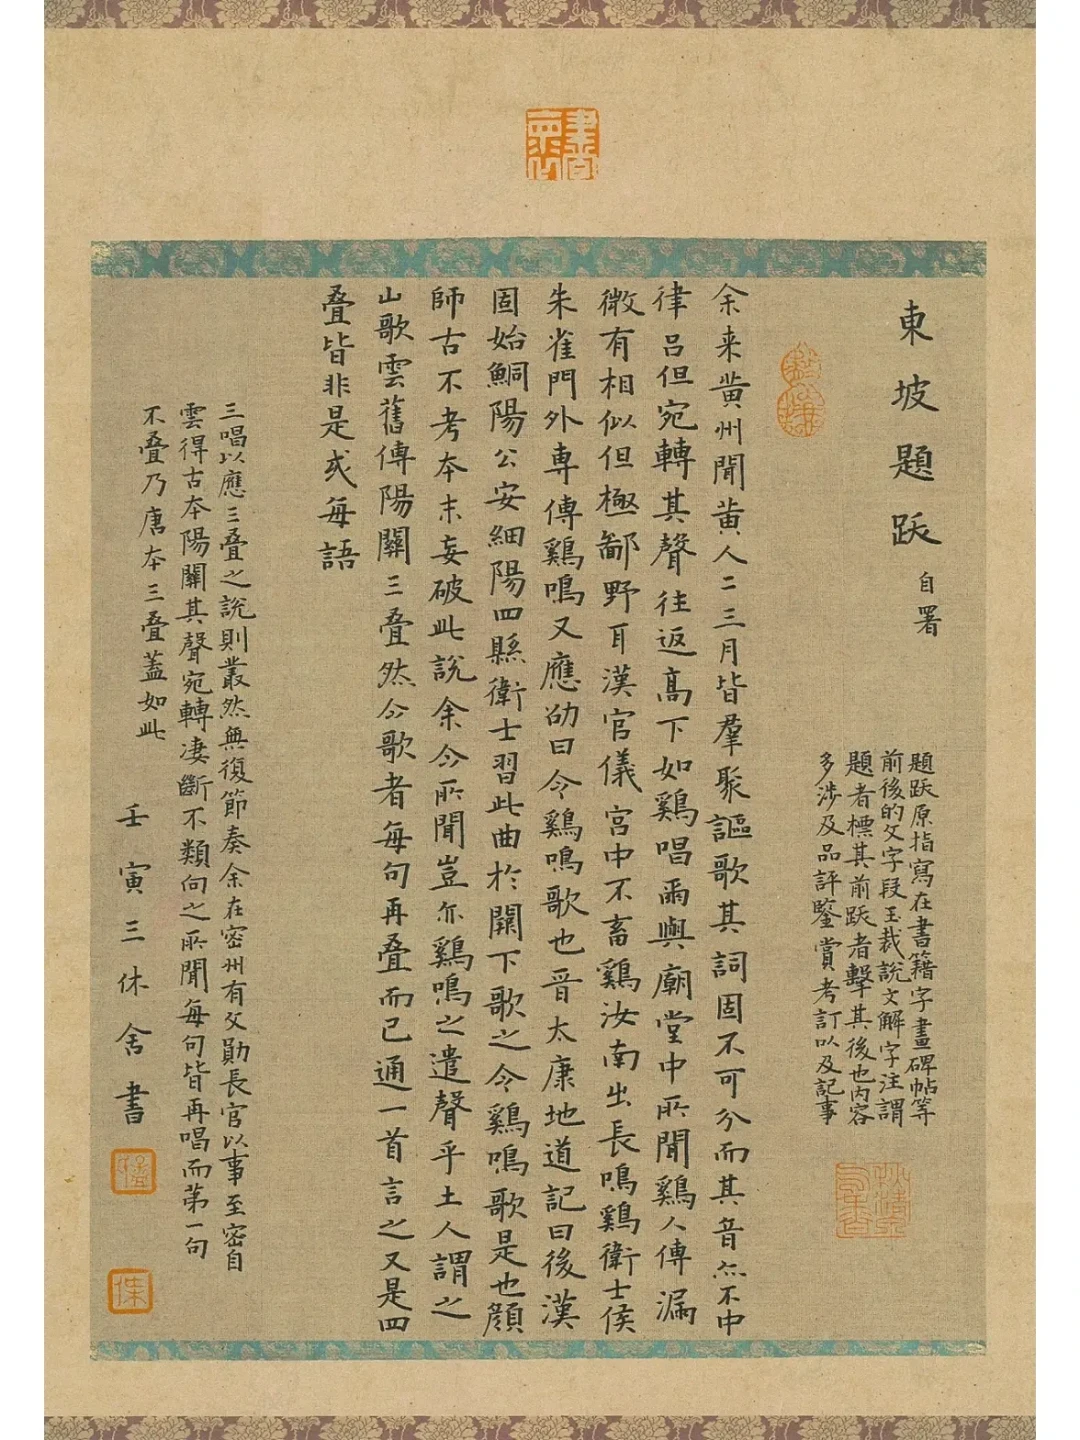 東坡題跋 自署
題跋原指寫在書籍字畫碑帖等
前後的文字段玉裁說文解字注謂
題者標其前跋者擊其後也內容
多涉及品評鑒賞考訂以及記事
余来黄州聞黄人二三月皆羣聚謳歌其詞固不可分而其音亦不中
律呂但宛轉其聲往返高下如鷄唱爾與廟堂中所聞鷄人傳漏
微有相似但極鄙野耳漢官儀宮中不畜鷄汝南出長鳴鷄衛士侯
朱雀門外専傳鷄鳴又應劭曰今鷄鳴歌也晉太康地道記曰後漢
固始鮦陽公安細陽四縣衛士習此曲於闕下歌之今鷄鳴歌是也顔
師古不考本末妄破此說余今所聞豈亦鷄鳴之遺聲乎土人謂之
山歌雲舊傳陽關三叠然今歌者每句再叠而已通一首言之又是四
叠皆非是或每語
三唱以應三叠之說則叢然無復節奏余在密州有文勛長官以事至密自
雲得古本陽關其聲宛轉淒斷不類向之所聞每句皆再唱而第一句
不叠乃唐本三叠蓋如此
壬寅三休舍書